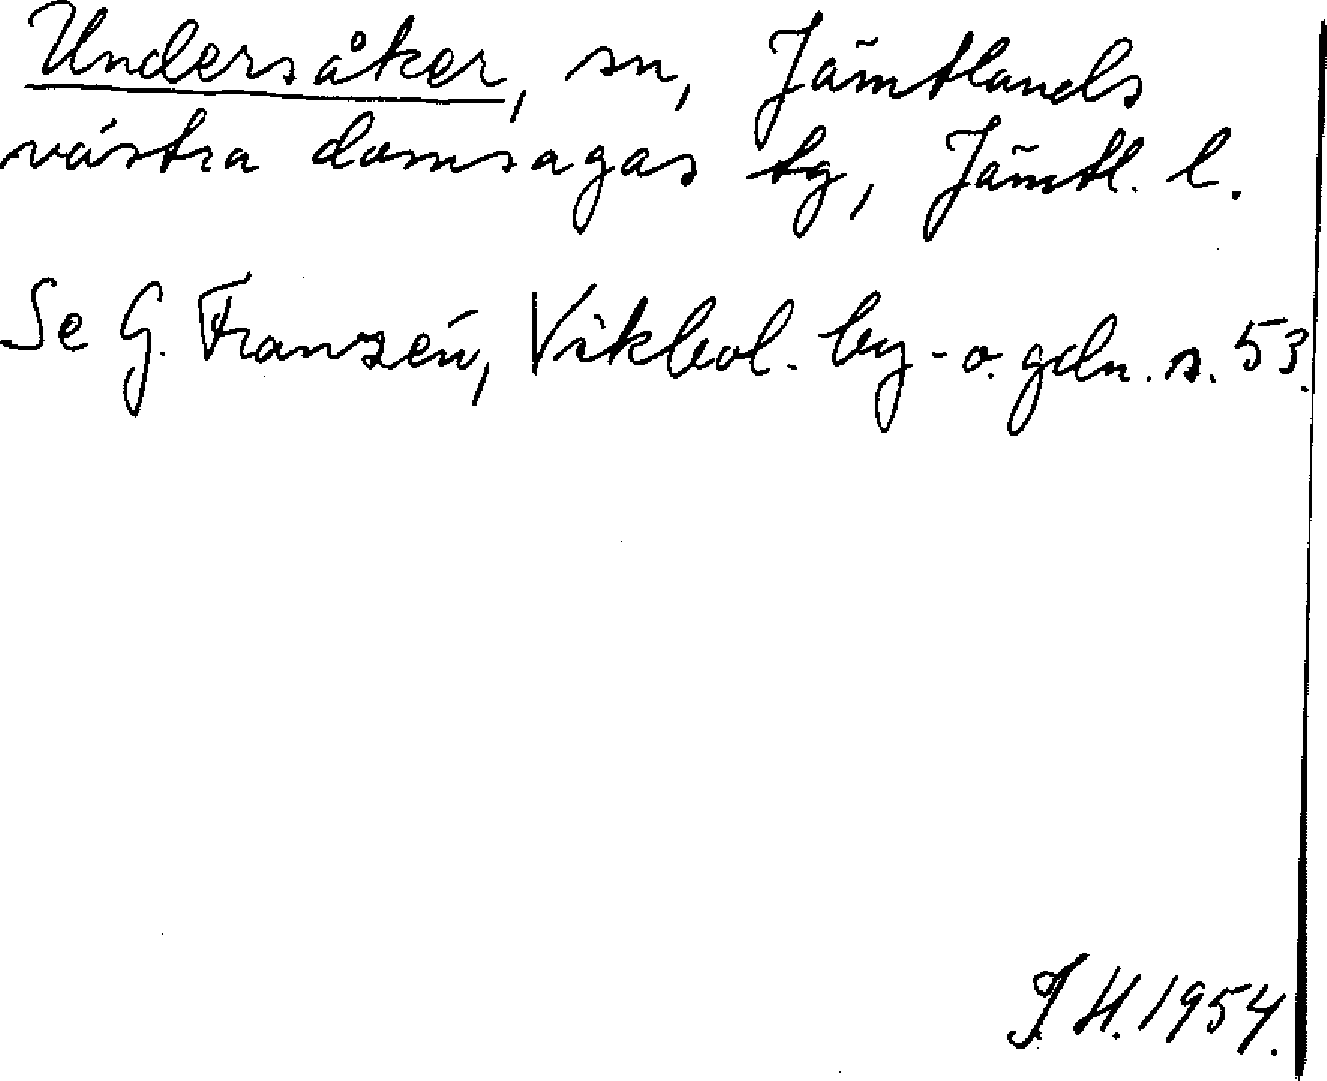 Undersåker, sn, Jämtlands
västra domsagas tg, Jämtl. l.
Se G. Franzén, Vikbol. by- o. gdn. s. 53.
J. H. 1954.